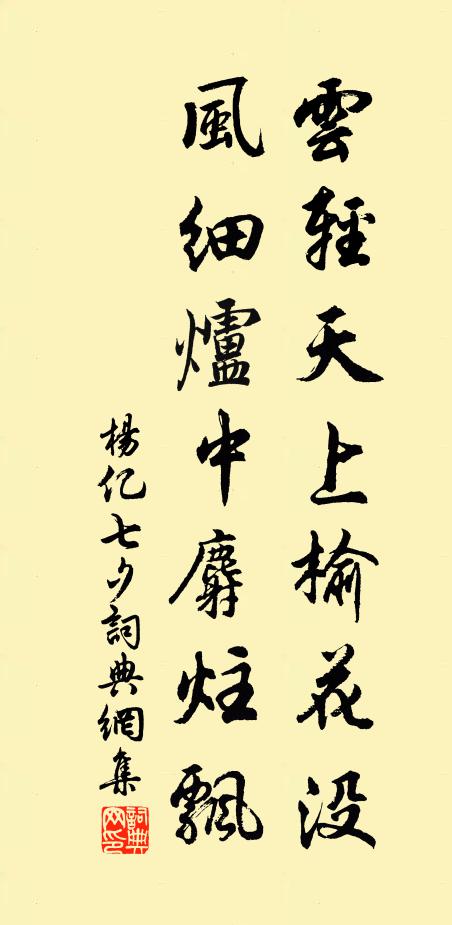 雲輕天上榆花没
風細爐中麝炷飄
楊億七夕詞典網集
詞典网印